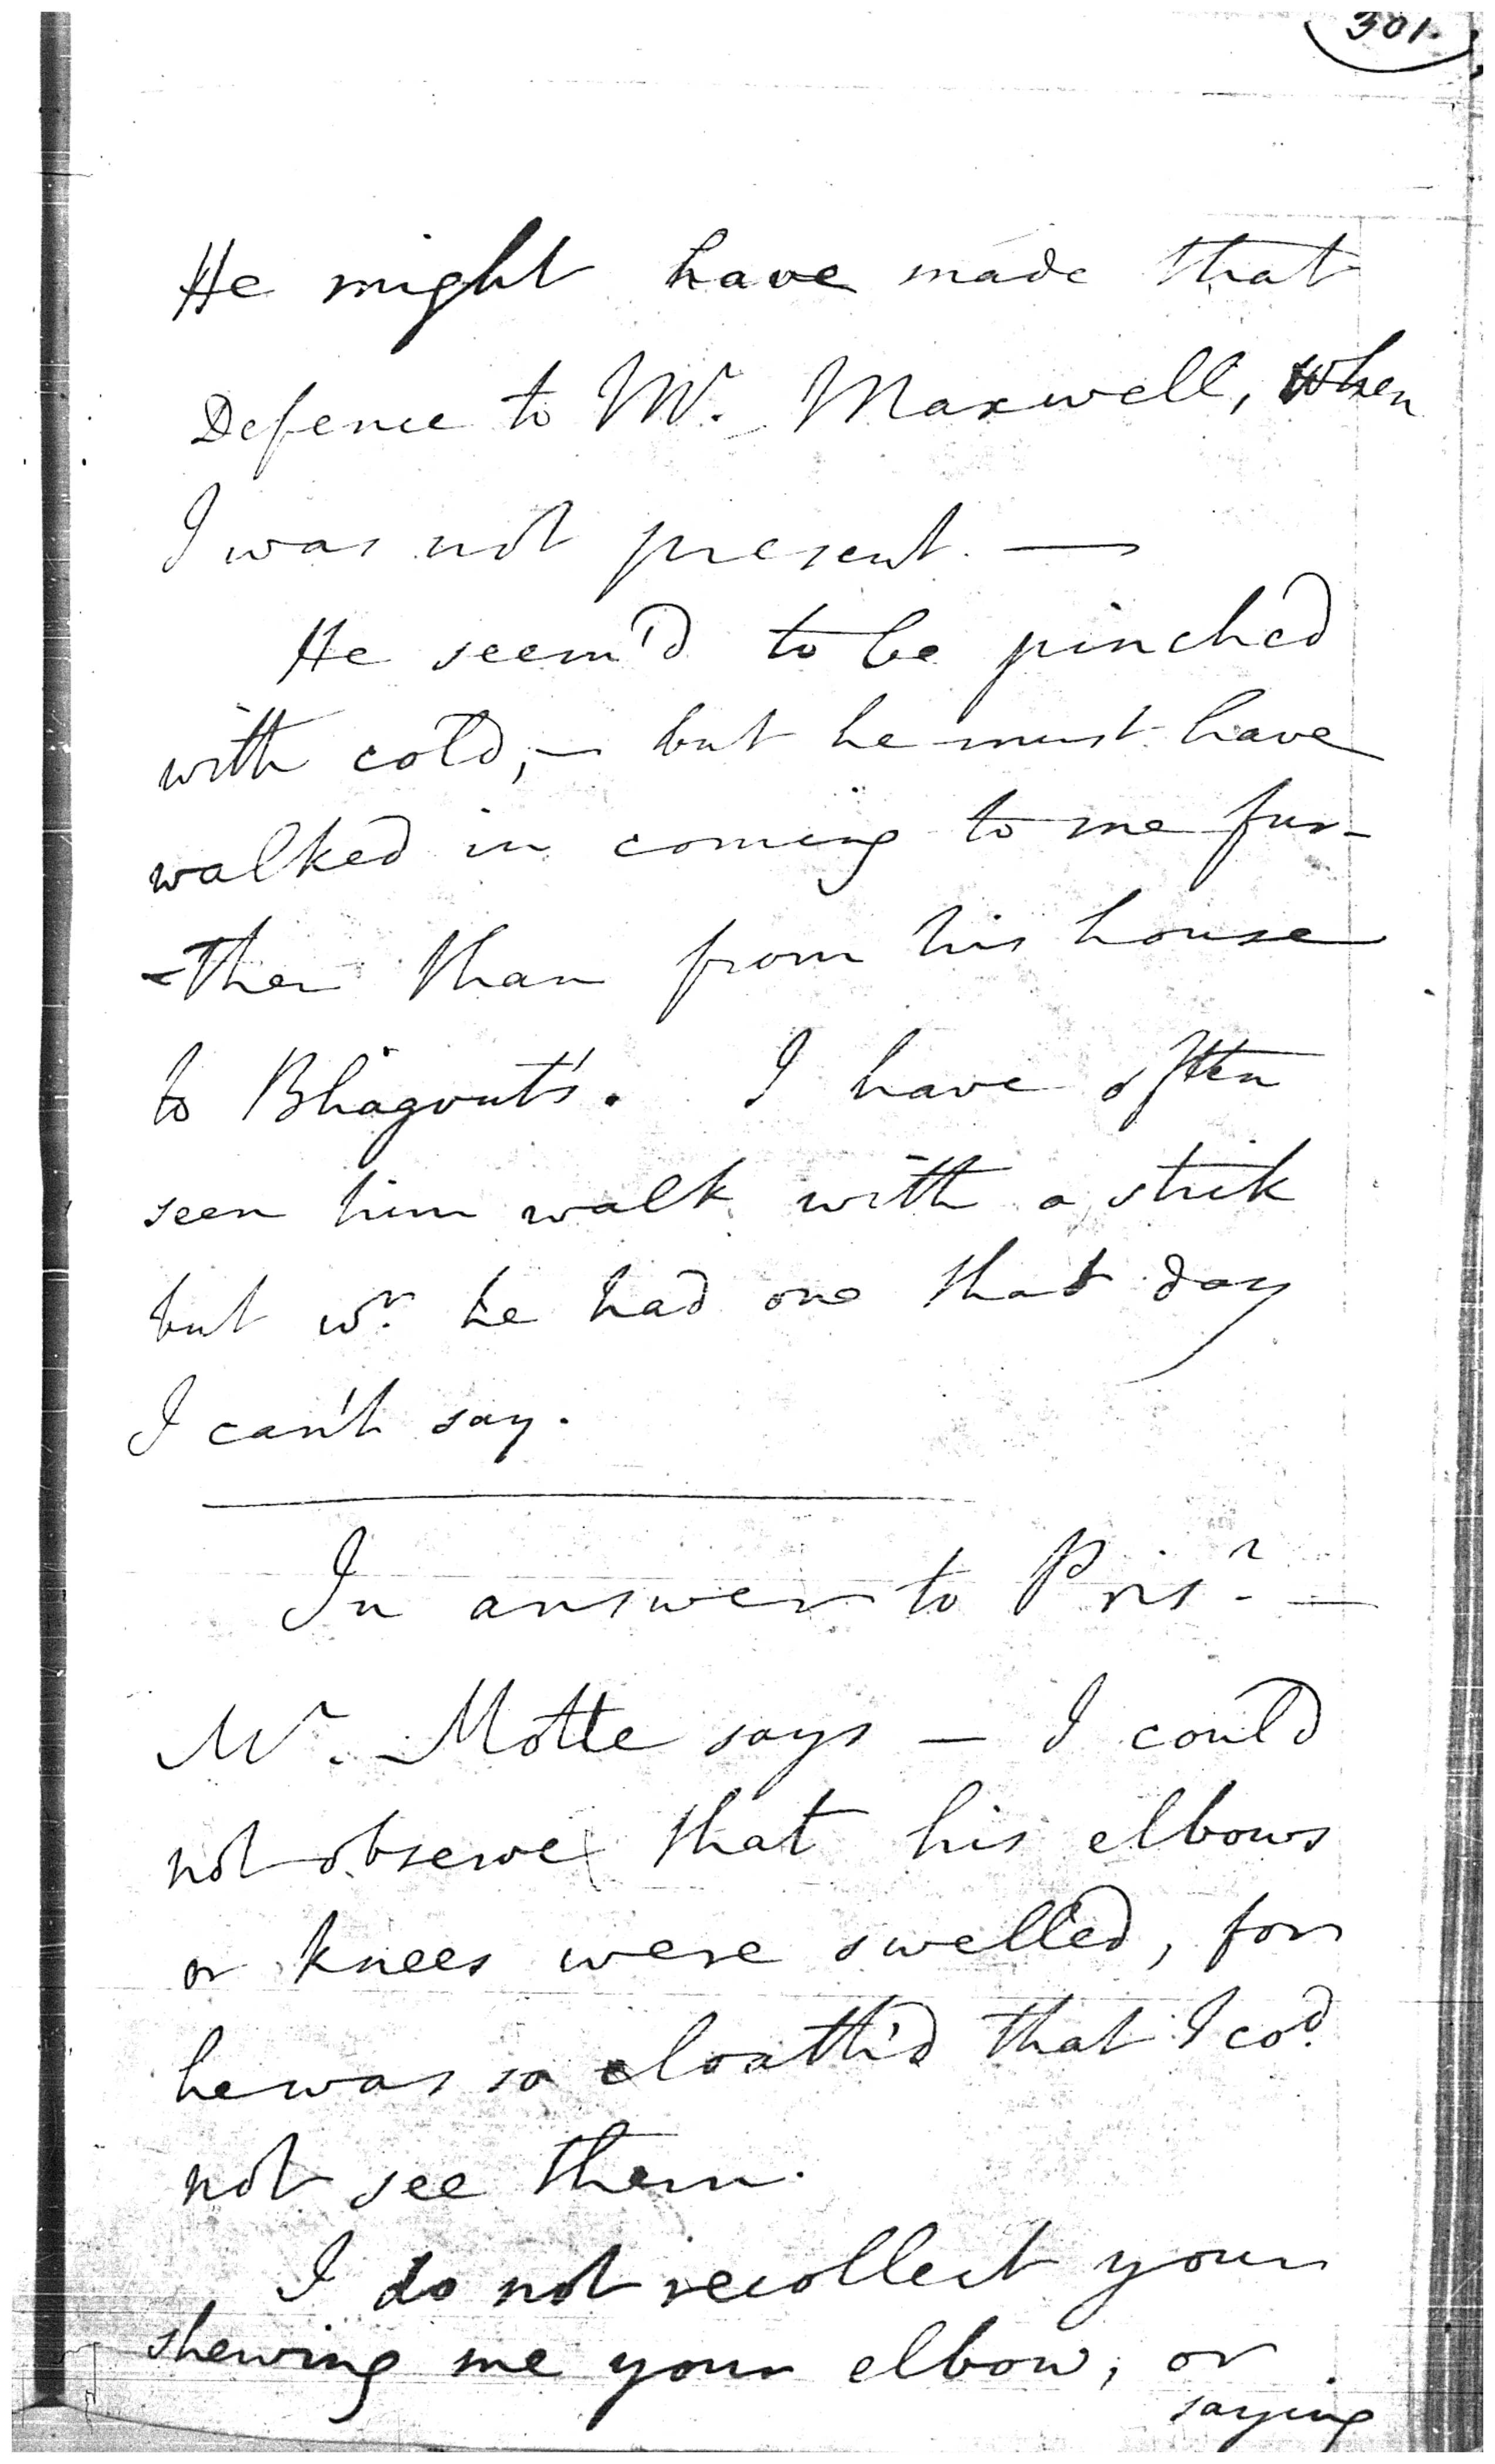 301.
He might have made that
Defence to Mr. Maxwell, when
I was not present. —
He seem'd to be pinched
with cold, — but he must have
walked in coming to me fur-
-ther than from his house
to Bhagvut's. I have often
seen him walk with a stick
but wr. he had one that day
I can't say.
In answer to Prisr. —
Mr. Motte says — I could
not observe that his elbows
or knees were swelled, for
he was so cloath'd that I cod.
not see them.
I do not recollect your
shewing me your elbow, or
saying